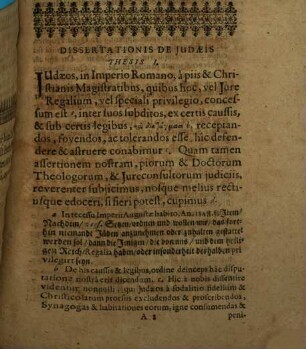 DISSERTATIONIS DE JUDÆIS
THESIS I.
JUdæos, in Imperio Romano, à piis & Chri-
stianis Magistratibus, quibus hoc, vel Jure
Regalium, vel speciali privilegio, conces-
sum est, inter suos subditos, ex certis caussis,
& sub certis legibus, receptan-
dos, fovendos, ac tolerandos esse, hic defen-
dere & astruere conabimur. Quam tamen
assertionem nostram, piorum & Doctorum
Theologorum, & Jureconsultorum judiciis,
reverenter subjicimus, nosque melius recti-
usque edoceri, si fieri potest, cupimus.
a In recessu Imperii Augustæ habito. An. 1548. §. Item/
Nachdem/ Setzen/ ordnen und wollen wir/ das fort-
hin niemandt Jüden anzunehmen oder zuhalten gestattet
werden sol/ dann die Jenigen/ die von uns/ und dem heili-
gen Reich/ Regalia haben/ oder insonderheit derhalben pri-
vilegiert seyn.
b De his caussis & legibus, ordine deinceps hâc dispu-
tatione nostrâ erit dicendum. c. Hic à nobis dissentire
videntur nonnulli, qui Judæos à sodalitio fidelium &
Christicolarum prorsus excludendos & proscribendos,
Synagogas & habitationes eorum, igne consumendas &
A 2 peni-